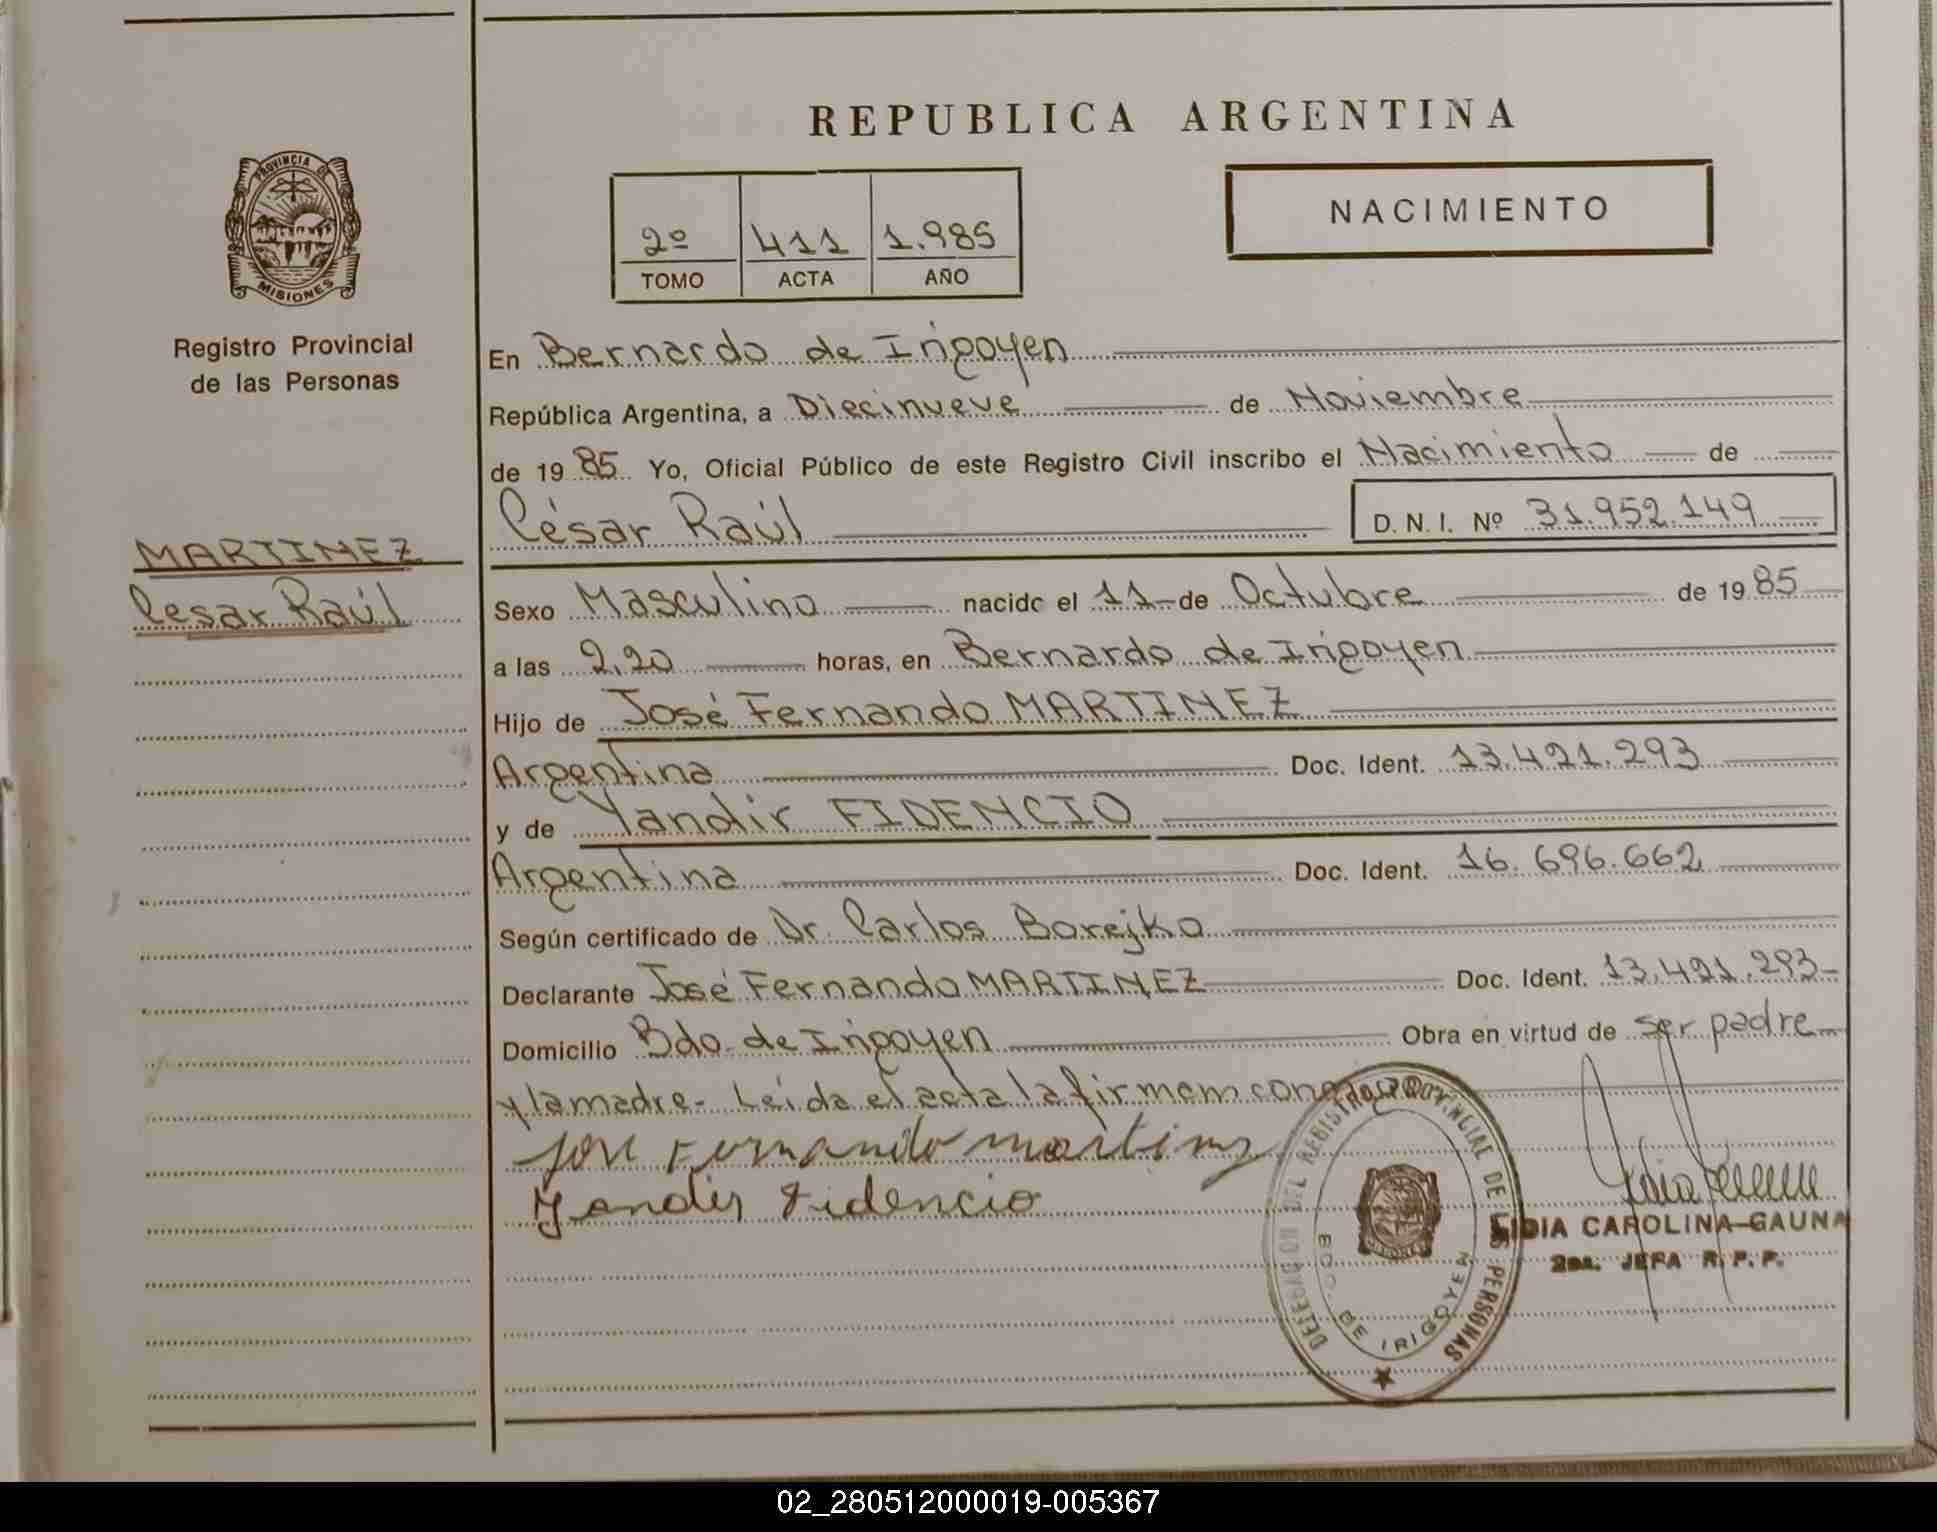 REPUBLICA ARGENTINA
PROVINCIA DE
MISIONES
Registro Provincial
de las Personas
NACIMIENTO
2º 411 1.985
TOMO ACTA AÑO
En Bernardo de Irigoyen
República Argentina, a Diecinueve de Noviembre
de 1985 Yo, Oficial Público de este Registro Civil inscribo el Nacimiento de
César Raúl D.N.I. Nº 31.952.149
MARTINEZ
Cesar Raúl
Sexo Masculino nacido el 11 de Octubre de 1985
a las 2,20 horas, en Bernardo de Irigoyen
Hijo de José Fernando MARTINEZ
Argentina Doc. Ident. 13.421.293
y de Yandir FIDENCIO
Argentina Doc. Ident. 16.696.662
Según certificado de Dr. Carlos Borejko
Declarante José Fernando MARTINEZ Doc. Ident. 13.421.293
Domicilio Bdo. de Irigoyen Obra en virtud de ser padre
y la madre- Leída el acta la firman
José Fernando martinez
Yandir Fidencio
DELEGACION DEL REGISTRO PROVINCIAL DE LAS PERSONAS
BDO. DE IRIGOYEN
MISIONES
LIDIA CAROLINA GAUNA
2da. JEFA R. P. P.
02_280512000019-005367